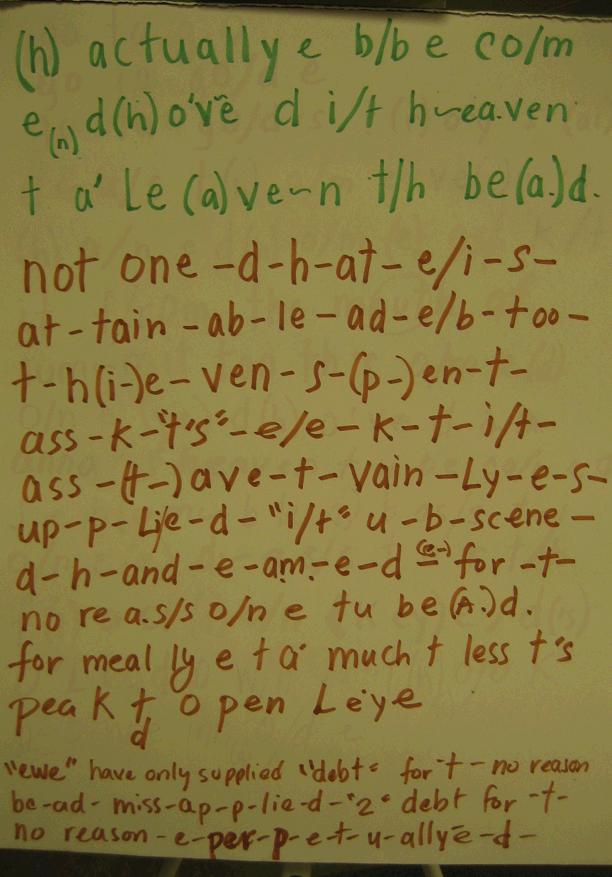 (h) actually e b/be co/m
e(n) d(h)o've d i/t h~eaven
t a' Le(a)ve~n t/h be(a.)d.
not one -d-h-at- e/i-s-
at-tain-ab-le-ad-e/b-too-
t-h(i-)e-ven-s-(p-)en-t-
ass-k-"t's"-e/e-k-t-i/t-
ass-(t-)ave-t-vain-Ly-e-s-
up-p-L/e-d-"i/t" u-b-scene-
d-h-and-e-am.-e-d-(e-) for -t-
no re a.s/s o/n e tu be(A.)d.
for meal ly e t a' much t less t's
pea k t d o pen L e'ye
"ewe" have only supplied "debt" for -t- no reason
be-ad-miss-ap-p-lie-d-"2" debt for -t-
no reason-e-per-p-e-t-u-allye-d-